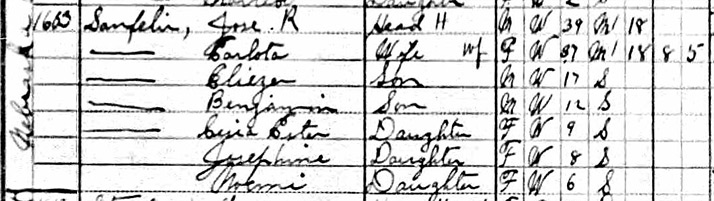 1653 Sanfeliz, Jose R Head H M W 39 M1 18
Carlota Wife F W 37 M1 18 8 5
Eliezer Son M W 17 S
Benjamin Son M W 12 S
Ester Daughter F W 9 S
Josephine Daughter F W 8 S
Noemi Daughter F W 6 S